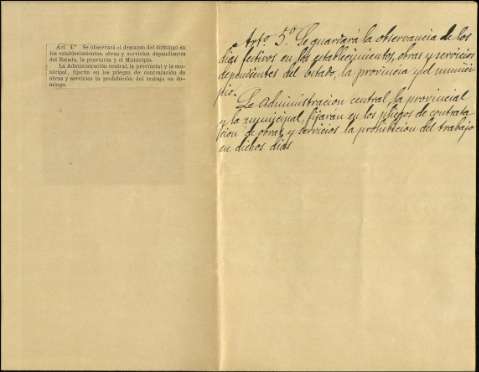 Art. 1.º Se observará el descanso del domingo en
los establecimientos, obras y servicios dependientes
del Estado, la provincia y el Municipio.
La Administración central, la provincial y la mu-
nicipal, fijarán en los pliegos de contratación de
obras y servicios la prohibición del trabajo en do-
mingo.
Artº. 5º Se guardará la observancia de los
dias festivos en los establecimientos, obras y servicios
dependientes del Estado, la provincia y el munici-
pio.
La Administracion central, la provincial
y la municipal, fijaran en los pliegos de contrata-
cion de obras y servicios la prohibicion del trabajo
en dichos dias